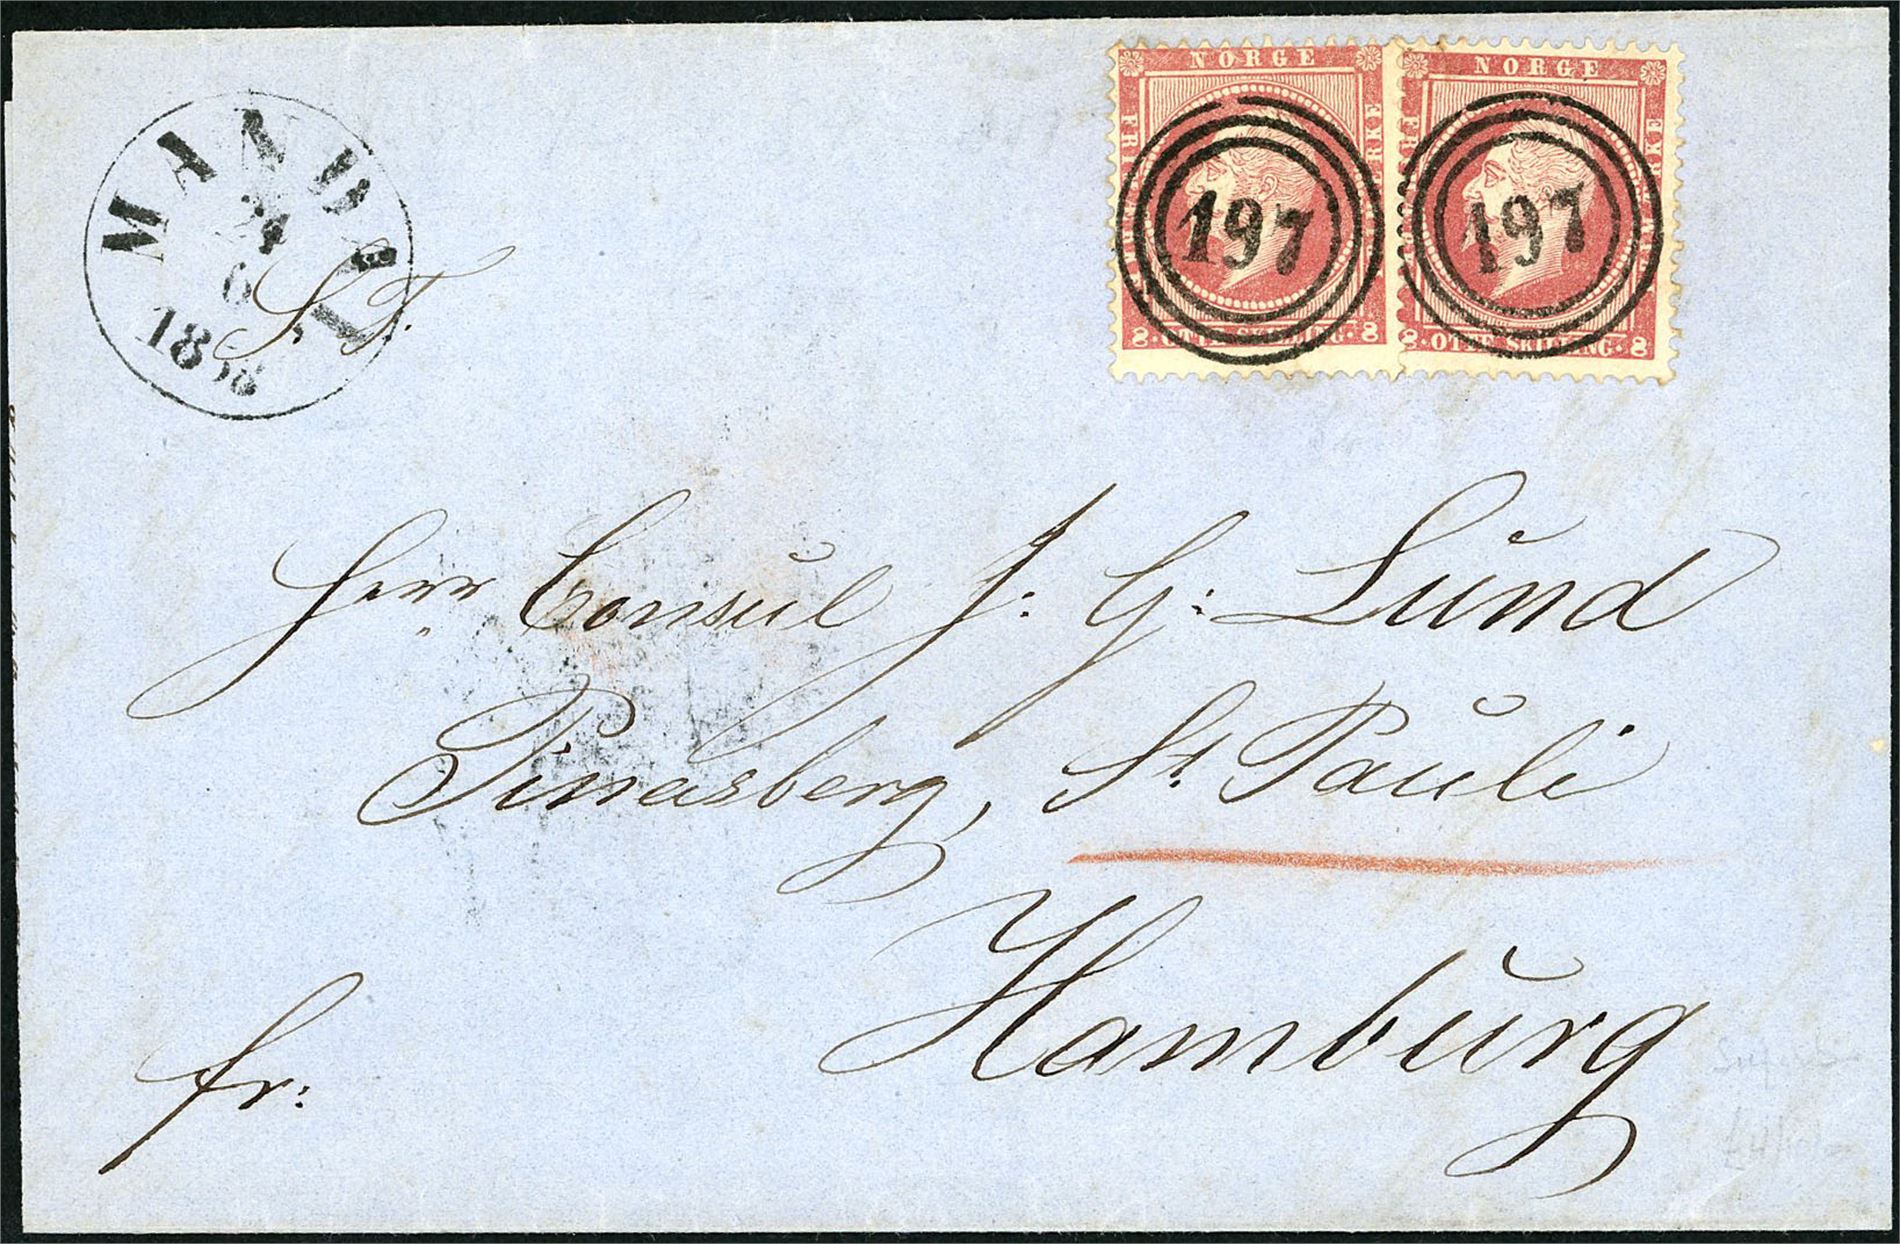 MANDAL
24
6
1858
S. T.
NORGE
FRIMÆRKE
FRIMÆRKE
197
8 · OTTE SKILLING · 8
NORGE
FRIMÆRKE
FRIMÆRKE
197
8 · OTTE SKILLING · 8
Herr Consul J. G: Lund
Pinnasberg, St. Pauli
Hamburg
fr: